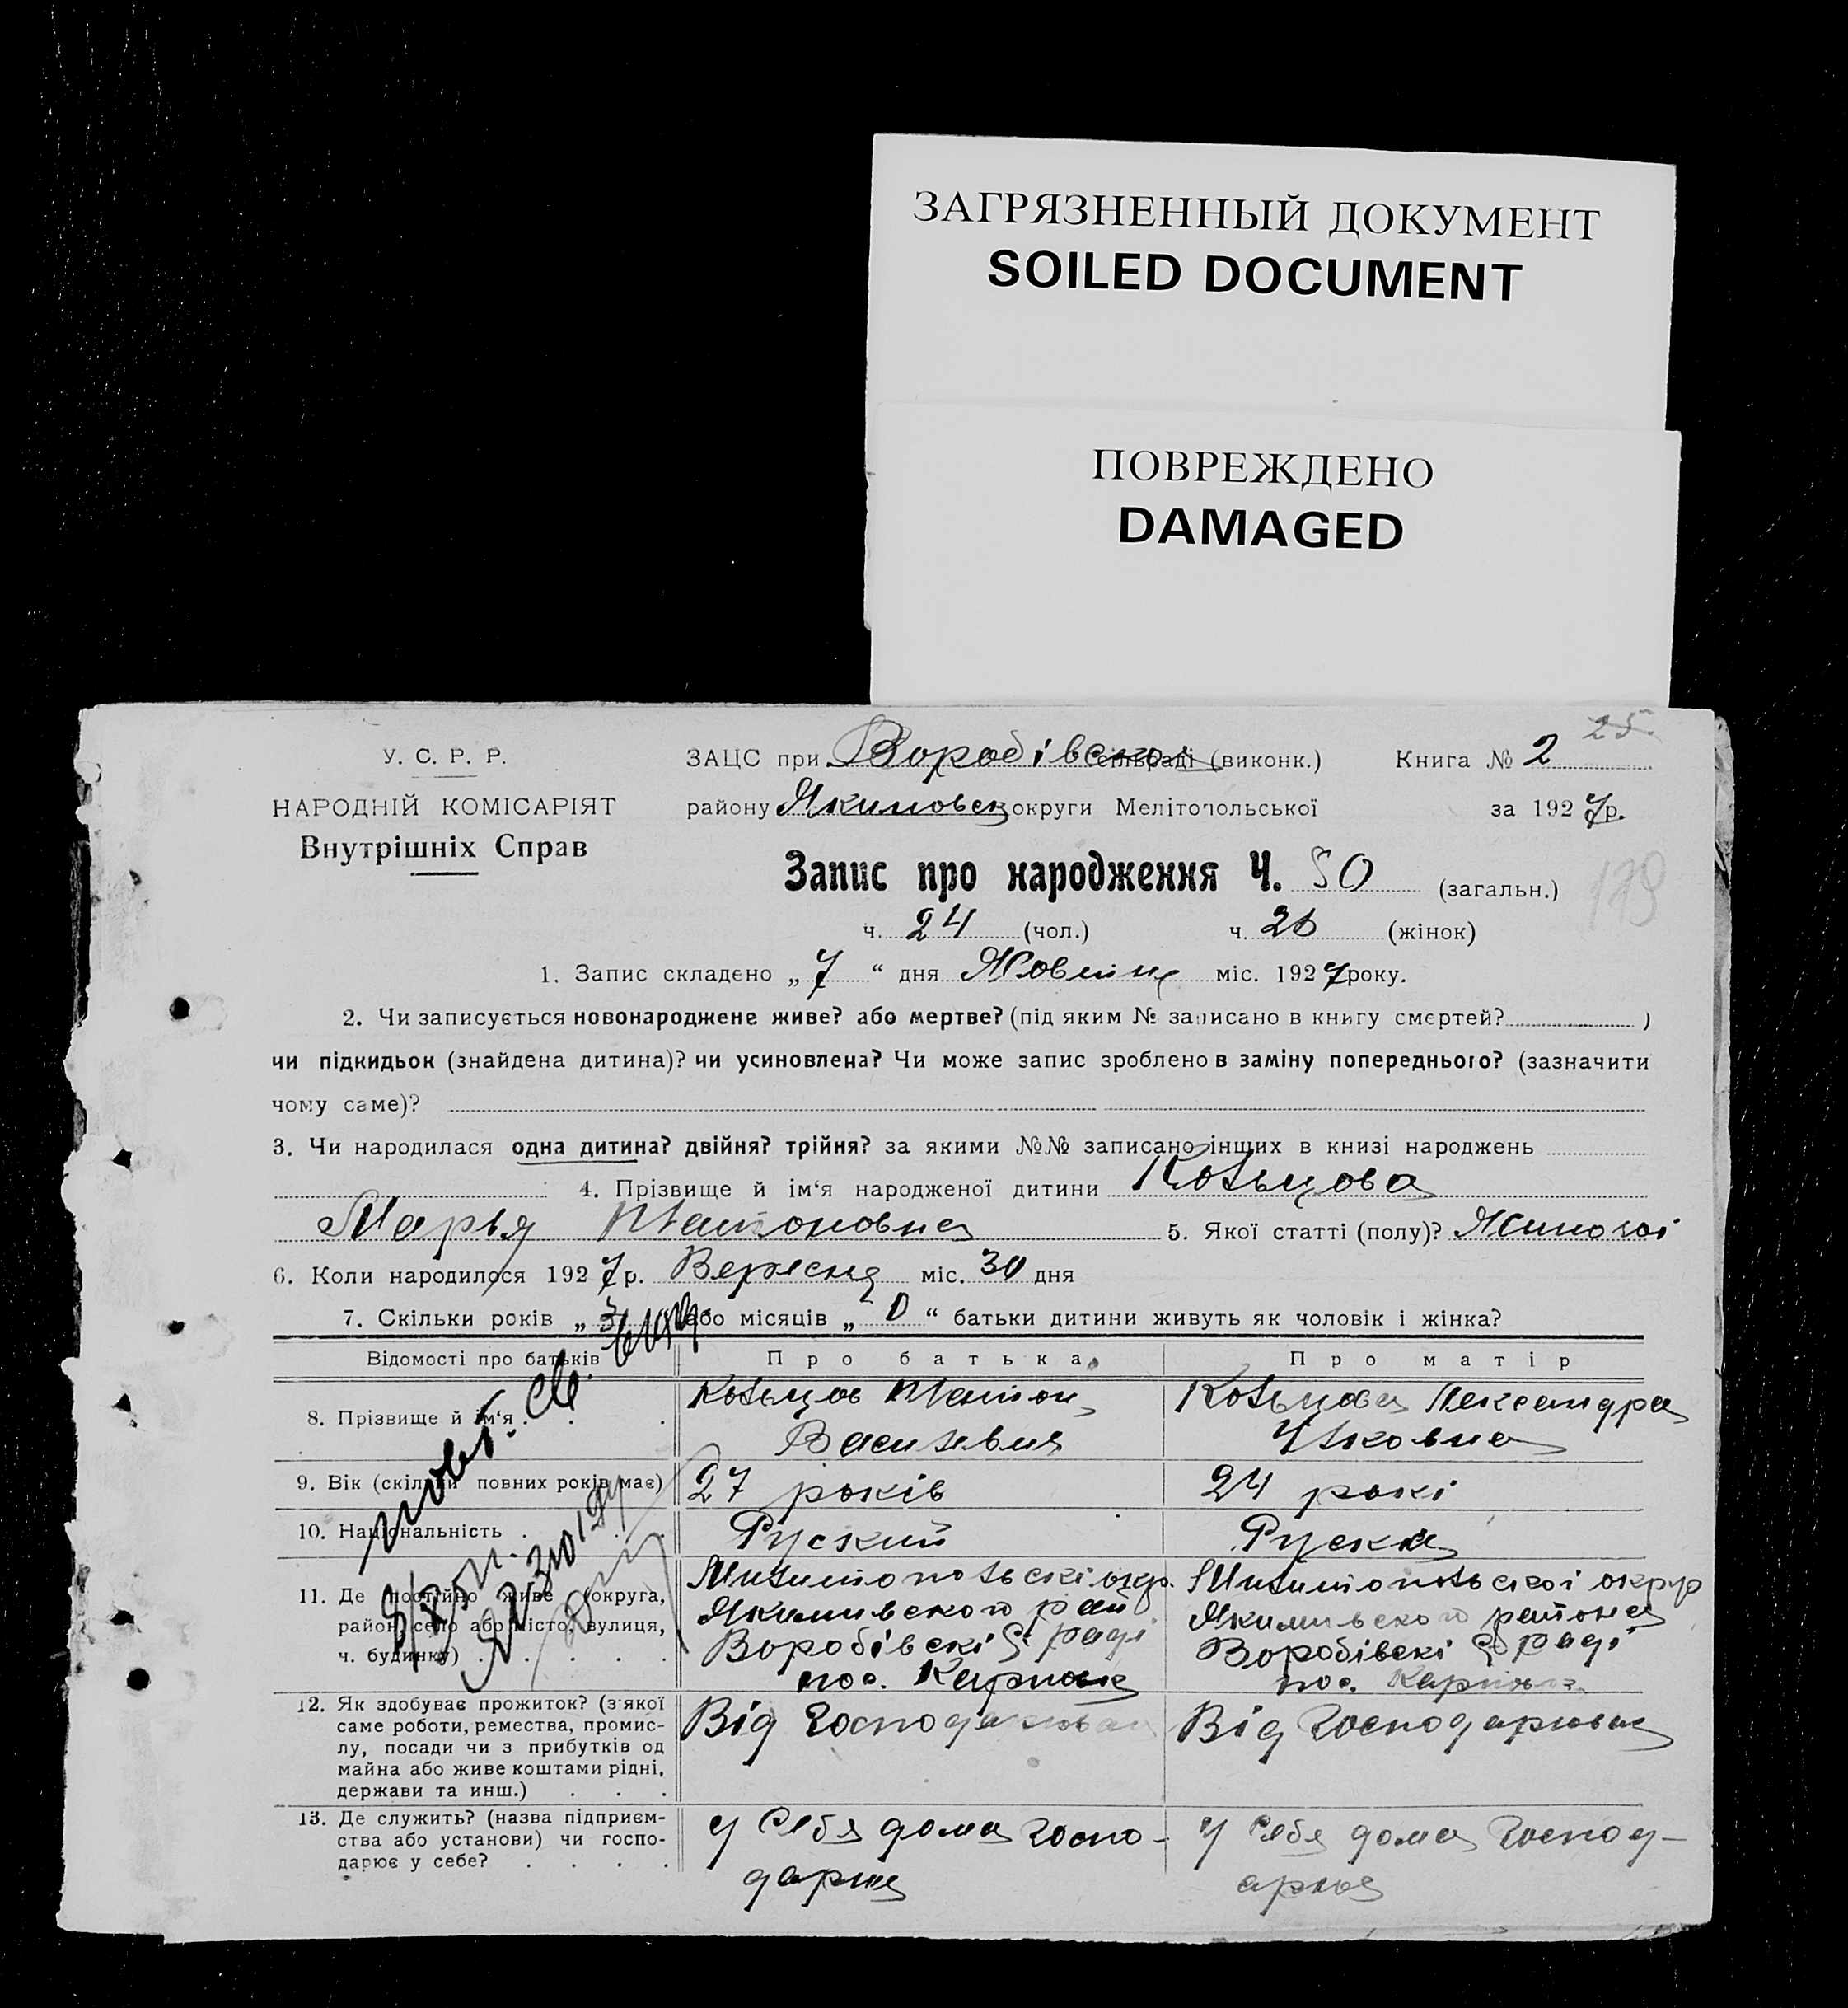 ЗАГРЯЗНЕННЫЙ ДОКУМЕНТ
SOILED DOCUMENT
ПОВРЕЖДЕНО
DAMAGED
25.
У. С. Р. Р.
НАРОДНІЙ КОМІСАРІЯТ
Внутрішніх Справ
ЗАЦС при Воробівской сільраді (виконк.) Книга № 2
району Якимовск округи Мелітопольської за 1927 р.
Запис про народження Ч. 50 (загальн.)
179
ч. 24 (чол.) ч. 26 (жінок)
1. Запис складено „ 7 “ дня Жовтня міс. 1927 року.
2. Чи записується новонароджене живе? або мертве? (під яким № записано в книгу смертей? )
чи підкидьок (знайдена дитина)? чи усиновлена? Чи може запис зроблено в заміну попереднього? (зазначити
чому саме)?
3. Чи народилася одна дитина? двійня? трійня? за якими №№ записано інших в книзі народжень
4. Прізвище й ім‘я народженої дитини Кольцова
Марья Платоновна 5. Якої статті (полу)? Жиночої
6. Коли народилося 1927 р. Вересня міс. 30 дня
7. Скільки років „ 3 або місяців „ 0 “ батьки дитини живуть як чоловік і жінка?
Відомості про батьків Про батька Про матір
8. Прізвище й ім‘я Кольцов Платон Кольцова Лександра
Васильвич
9. Вік (скільки повних років має) 27 років 24 рокі
10. Національність Руский Руска
11. Де постійно живе (округа, Милитопольскі окр. Милитопольскої округ
район, село або місто, вулиця, Якимивского рай Якимивского района
ч. будинку) Воробівскі С. раді Воробівскі С раді
пос.  пос.
12. Як здобуває прожиток? (з якої Від господарюван Від господарюван
саме роботи, ремества, промис-
лу, посади чи з прибутків од
майна або живе коштами рідні,
держави та инш.)
13. Де служить? (назва підприєм- У себя дома госпо- У себя дома господ-
ства або установи) чи госпо-
дарює у себе? дарює арює